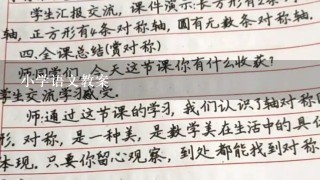 学生汇报交流，课件演示：长方形有2条
轴，正方形有4条对称轴，圆有无数条对称轴.
四.全课总结(赏对称)
师：同学们，今天这节课你有什么收获？
小学语文教案
学生交流学习感受.
师：通过这节课的学习，我们认识了轴对称图
形.对称，是一种美，是数学美在生活中的具体
体现.只要你留心观察，到处都能找到对称